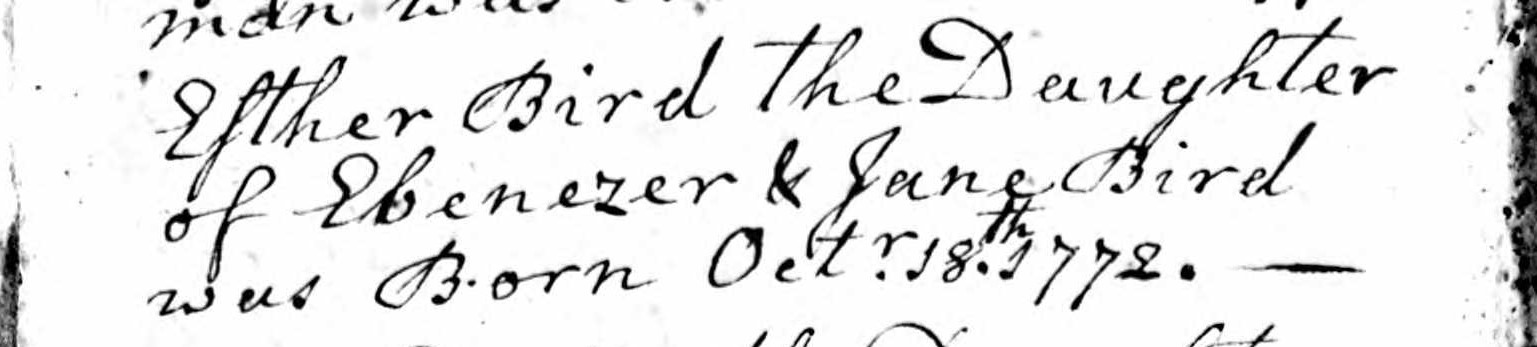 man was
Esther Bird the Daughter
of Ebenezer & Jane Bird
was Born Octr. 18.th 1772. —